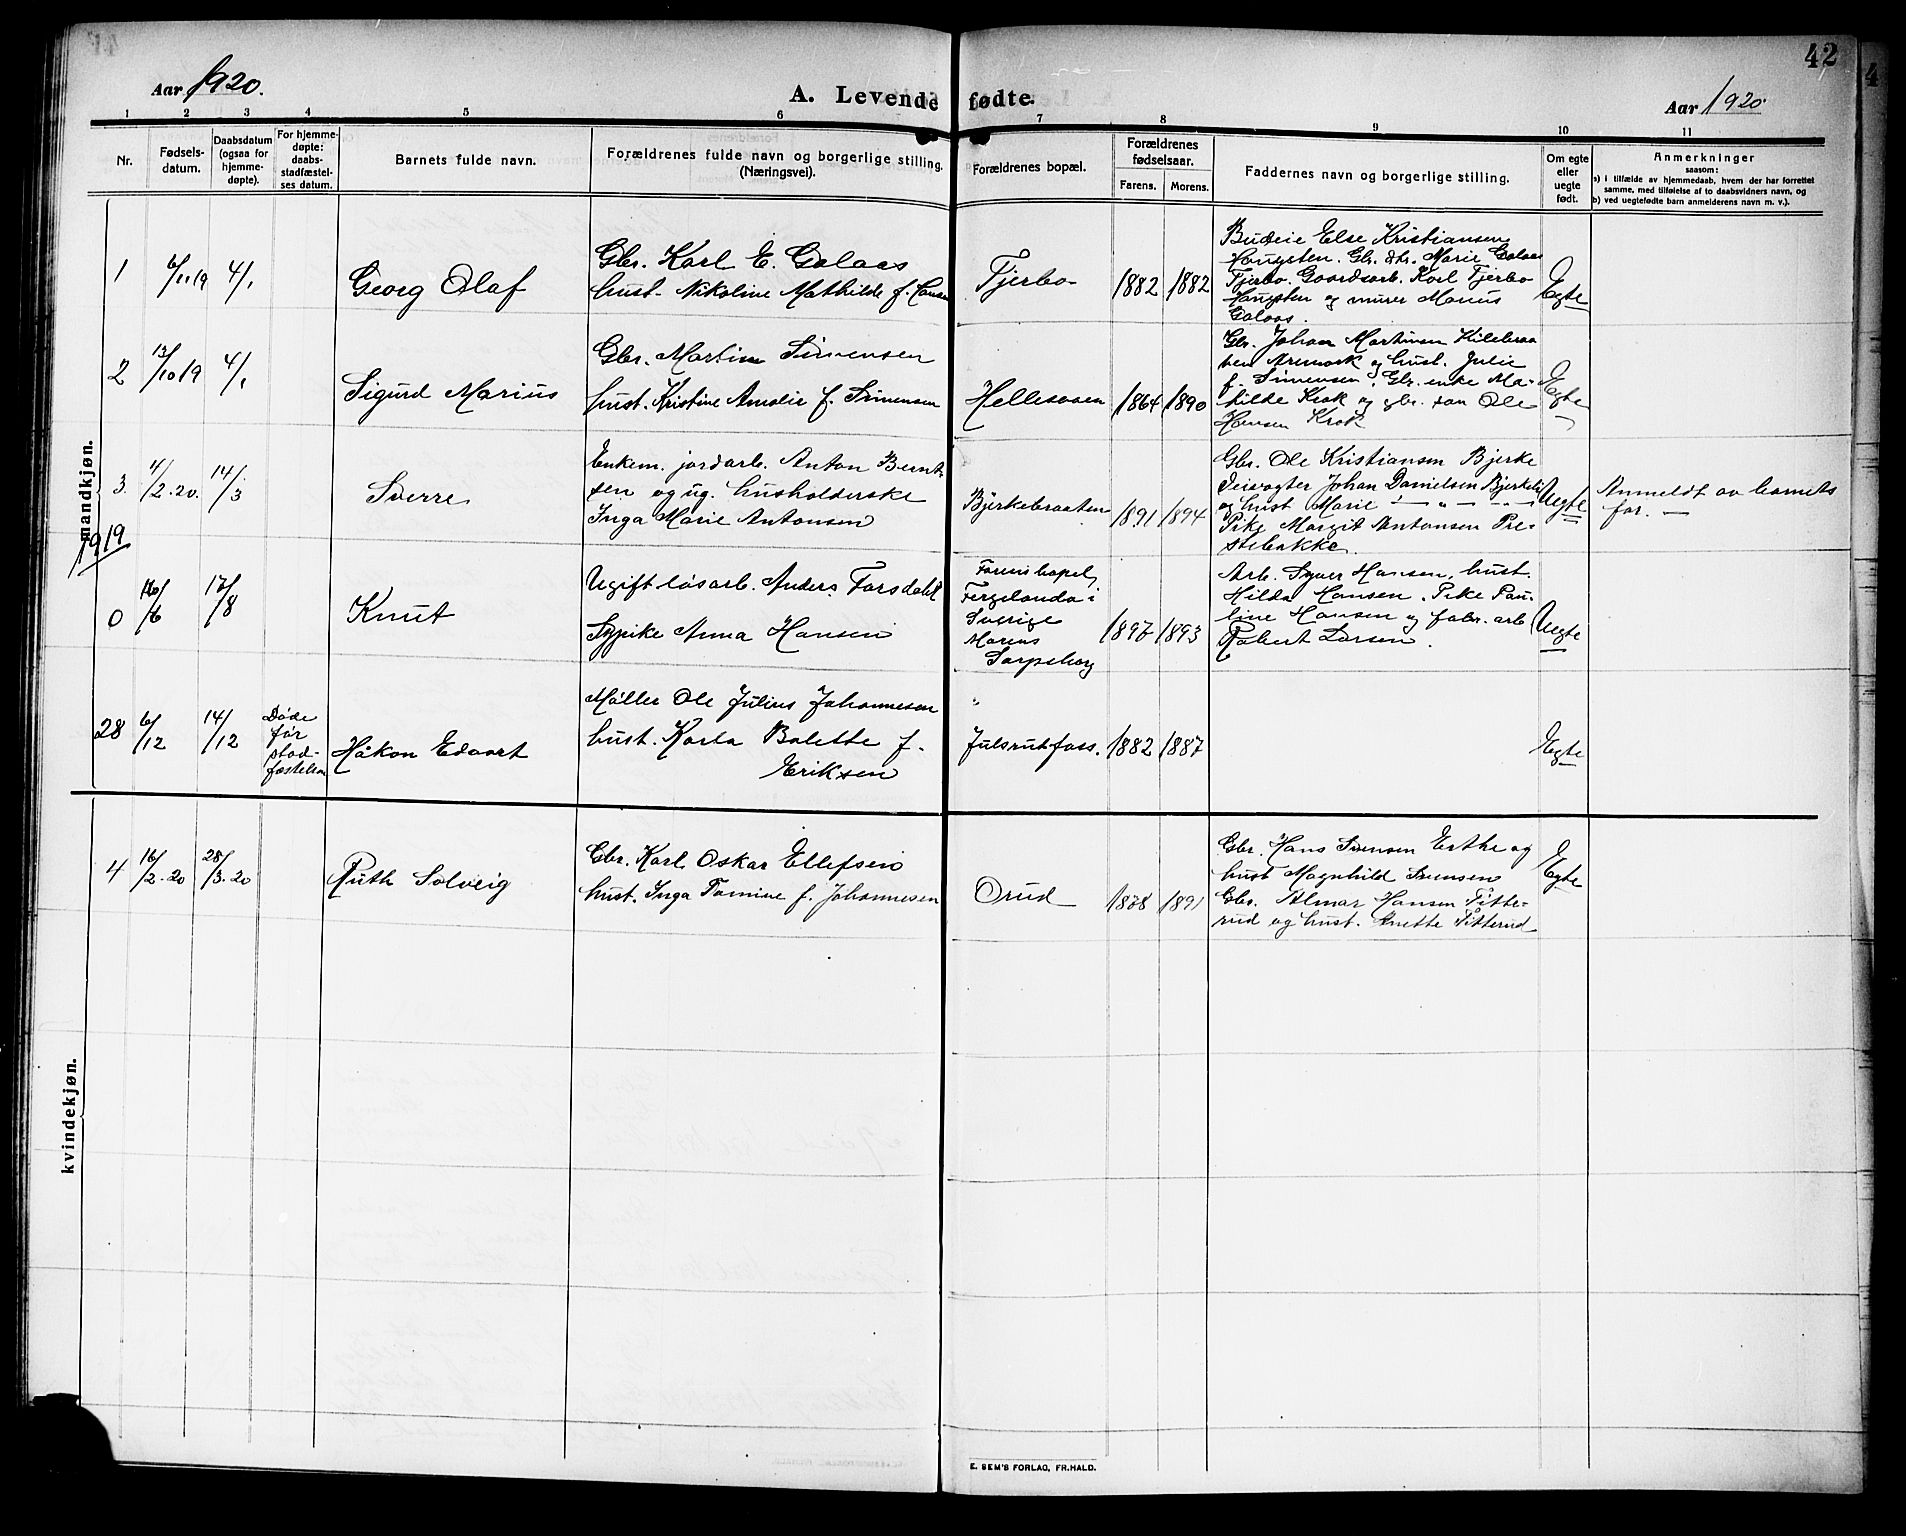 42
Aar 1920.
A. Levende fødte.
Aar 1920.
1 2 3 4 5 6 7 8 9 10 11
Nr.
Fødsels-
datum.
Daabsdatum
(ogsaa for
hjemme-
døpte).
For hjemme-
døpte:
daabs-
stadfæstel-
ses datum.
Barnets fulde navn.
Forældrenes fulde navn og borgerlige stilling.
(Næringsvei).
Forældrenes bopæl.
Forældrenes
fødselsaar.
Farens. Morens.
Faddernes navn og borgerlige stilling.
Om egte
eller
uegte
født.
Anmerkninger
saasom:
a) i tilfælde av hjemmedaab, hvem der har forrettet
samme, med tilføielse af to daabsvidners navn, og
b) ved uegtefødte barn anmelderens navn m. v.).
mandkjøn.
1 6/11 19 4/1
Georg Olaf
Gbr. Karl E. Golaas
hust. Nikoline Mathilde f. Hansen
Tjerbo
1882 1882
Budeie Else Kristiansen
Haugsten. Gbr. dtr. Marie Golaas
Tjerbo. Gaardsarb. Karl Tjerbo
Haugsten og murer Marius
Golaas.
Egte
2 13/10 19 4/1
Sigurd Marius
Gbr. Martin Simensen
hust. Kristine Amalie f. Simensen
Hellesaaen
1864 1890
Gbr. Johan Martinsen
Aremark og hust. Julie
f. Simensen, Gbr. enke Ma-
thilde Krok og gbr. søn Ole
Hansen Krok
Egte
3 4/2.20. 14/3
Sverre
Enkem. jordarb. Anton Bernt-
sen og ug. husholderske
Inga Marie Antonsen
Bjerkebraaten
1891 1894
Gbr. Ole Kristiansen Bjerke
Johan Danielsen
og hust Marie — " — " —
Pike Margit Antonsen Pre-
stebakke.
Uegte
Anmeldt av barnets
far. —
1919
0 16/6 17/8
Knut
Ugift løsarb. Anders Forsdahl
Sypike Anna Hansen
Farens bopel,
Fergelanda i
Sverige
Morens
Sarpsborg
1897 1893
Arb. Syver Hansen, hust.
Hilda Hansen. Pike Pau-
line Hansen og fabr. arb
Robert Larsen.
Uegte
28 6/12 14/12
Døde
før
stad-
fæstelsen
Håkon Edvart
Møller Ole Julius Johannesen
hust. Karla Bolette f.
Eriksen
"
Julsrutfoss.
1882 1887
Egte
kvindekjøn.
4 16/2.20 28/3.20
Ruth Solveig
Gbr. Karl Oskar Ellefsen
hust. Inga Tomine f. Johannesen
Orud
1878 1891
Gbr. Hans Svensen Erthe og
hust Magnhild Svensen
Gbr. Almar Hansen Titte-
rud og hust. Anette Titterud
Egte
E. SEM'S FORLAG, FR.HALD.